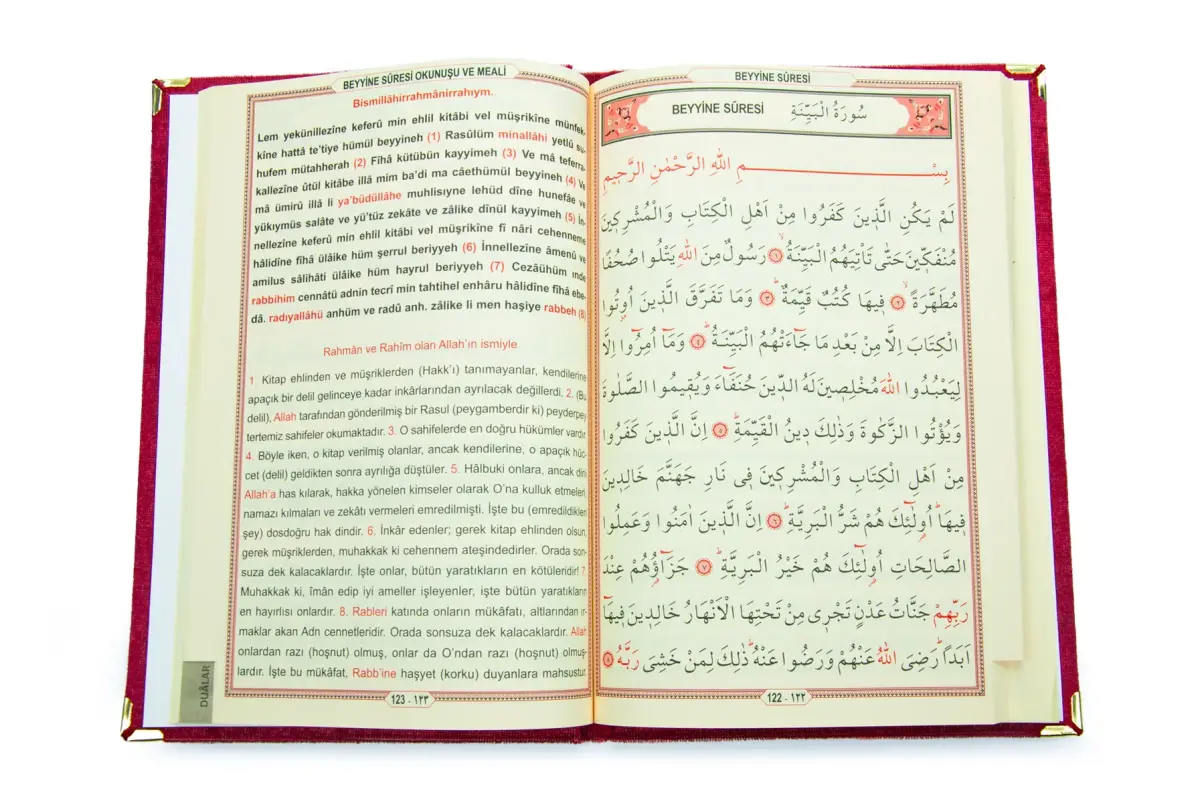 BEYYİNE SÛRESİ
BEYYİNE SÛRESİ سُورَةُ الْبَيِّنَةِ
بِسْــــمِ اللهِ الرَّحْمٰنِ الرَّحِيمِ
لَمْ يَكُنِ الَّذ۪ينَ كَفَرُوا مِنْ اَهْلِ الْكِتَابِ وَالْمُشْرِك۪ينَ
مُنْفَكّ۪ينَ حَتّٰى تَاْتِيَهُمُ الْبَيِّنَةُۙ ﴿١﴾ رَسُولٌ مِنَ اللهِ يَتْلُوا صُحُفًا
مُطَهَّرَةًۙ ﴿٢﴾ ف۪يهَا كُتُبٌ قَيِّمَةٌۜ ﴿٣﴾ وَمَا تَفَرَّقَ الَّذ۪ينَ اُو۫تُوا
الْكِتَابَ اِلَّا مِنْ بَعْدِ مَا جَٓاءَتْهُمُ الْبَيِّنَةُۜ ﴿٤﴾ وَمَٓا اُمِرُٓوا اِلَّا
لِيَعْبُدُوا اللهَ مُخْلِص۪ينَ لَهُ الدّ۪ينَ حُنَفَٓاءَ وَيُق۪يمُوا الصَّلٰوةَ
وَيُؤْتُوا الزَّكٰوةَ وَذٰلِكَ د۪ينُ الْقَيِّمَةِۜ ﴿٥﴾ اِنَّ الَّذ۪ينَ كَفَرُوا
مِنْ اَهْلِ الْكِتَابِ وَالْمُشْرِك۪ينَ ف۪ي نَارِ جَهَنَّمَ خَالِد۪ينَ
ف۪يهَاۜ اُو۬لٰٓئِكَ هُمْ شَرُّ الْبَرِيَّةِۜ ﴿٦﴾ اِنَّ الَّذ۪ينَ اٰمَنُوا وَعَمِلُوا
الصَّالِحَاتِ اُو۬لٰٓئِكَ هُمْ خَيْرُ الْبَرِيَّةِۜ ﴿٧﴾ جَزَٓاؤُ۬هُمْ عِنْدَ
رَبِّهِمْ جَنَّاتُ عَدْنٍ تَجْر۪ي مِنْ تَحْتِهَا الْاَنْهَارُ خَالِد۪ينَ ف۪يهَٓا
اَبَدًاۜ رَضِيَ اللهُ عَنْهُمْ وَرَضُوا عَنْهُۜ ذٰلِكَ لِمَنْ خَشِيَ رَبَّهُ ﴿٨﴾
122 - ١٢٢
BEYYİNE SÛRESİ OKUNUŞU VE MEALİ
Bismillâhirrahmânirrahıym.
Lem yekünillezîne keferû min ehlil kitâbi vel müşrikîne münfek-
kîne hattâ te’tiye hümül beyyineh (1) Rasûlüm minallâhi yetlû su-
hufem mütahherah (2) Fîhâ kütübün kayyimeh (3) Ve mâ teferra-
kallezîne ûtül kitâbe illâ mim ba’di ma câethümül beyyineh (4) Ve
mâ ümirû illâ li ya’büdüllâhe muhlisıyne lehüd dîne hunefâe ve
yükıymüs salâte ve yü’tüz zekâte ve zâlike dînül kayyimeh (5) İn-
nellezîne keferû min ehlil kitâbi vel müşrikîne fî nâri cehenneme
hâlidîne fîhâ ülâike hüm şerrul beriyyeh (6) İnnellezîne âmenû ve
amilus sâlihâti ülâike hüm hayrul beriyyeh (7) Cezâühüm ınde
rabbihim cennâtü adnin tecrî min tahtihel enhâru hâlidîne fîhâ ebe-
dâ. radıyallâhü anhüm ve radû anh. zâlike li men haşiye rabbeh (8)
Rahmân ve Rahîm olan Allah’ın ismiyle
1. Kitap ehlinden ve müşriklerden (Hakk’ı) tanımayanlar, kendilerine
apaçık bir delil gelinceye kadar inkârlarından ayrılacak değillerdi. 2. (Bu
delil), Allah tarafından gönderilmiş bir Rasul (peygamberdir ki) peyderpey
tertemiz sahifeler okumaktadır. 3. O sahifelerde en doğru hükümler vardır
4. Böyle iken, o kitap verilmiş olanlar, ancak kendilerine, o apaçık hüc-
cet (delil) geldikten sonra ayrılığa düştüler. 5. Hâlbuki onlara, ancak dini
Allah’a has kılarak, hakka yönelen kimseler olarak O’na kulluk etmeleri
namazı kılmaları ve zekâtı vermeleri emredilmişti. İşte bu (emredildikleri
şey) dosdoğru hak dindir. 6. İnkâr edenler; gerek kitap ehlinden olsun,
gerek müşriklerden, muhakkak ki cehennem ateşindedirler. Orada son-
suza dek kalacaklardır. İşte onlar, bütün yaratıkların en kötüleridir! 7.
Muhakkak ki, îman edip iyi ameller işleyenler, işte bütün yaratıkların
en hayırlısı onlardır. 8. Rableri katında onların mükâfatı, altlarından ır-
maklar akan Adn cennetleridir. Orada sonsuza dek kalacaklardır. Allah
onlardan razı (hoşnut) olmuş, onlar da O’ndan razı (hoşnut) olmuş-
lardır. İşte bu mükâfat, Rabb’ine haşyet (korku) duyanlara mahsustur.
DUÂLAR
123 - ١٢٣